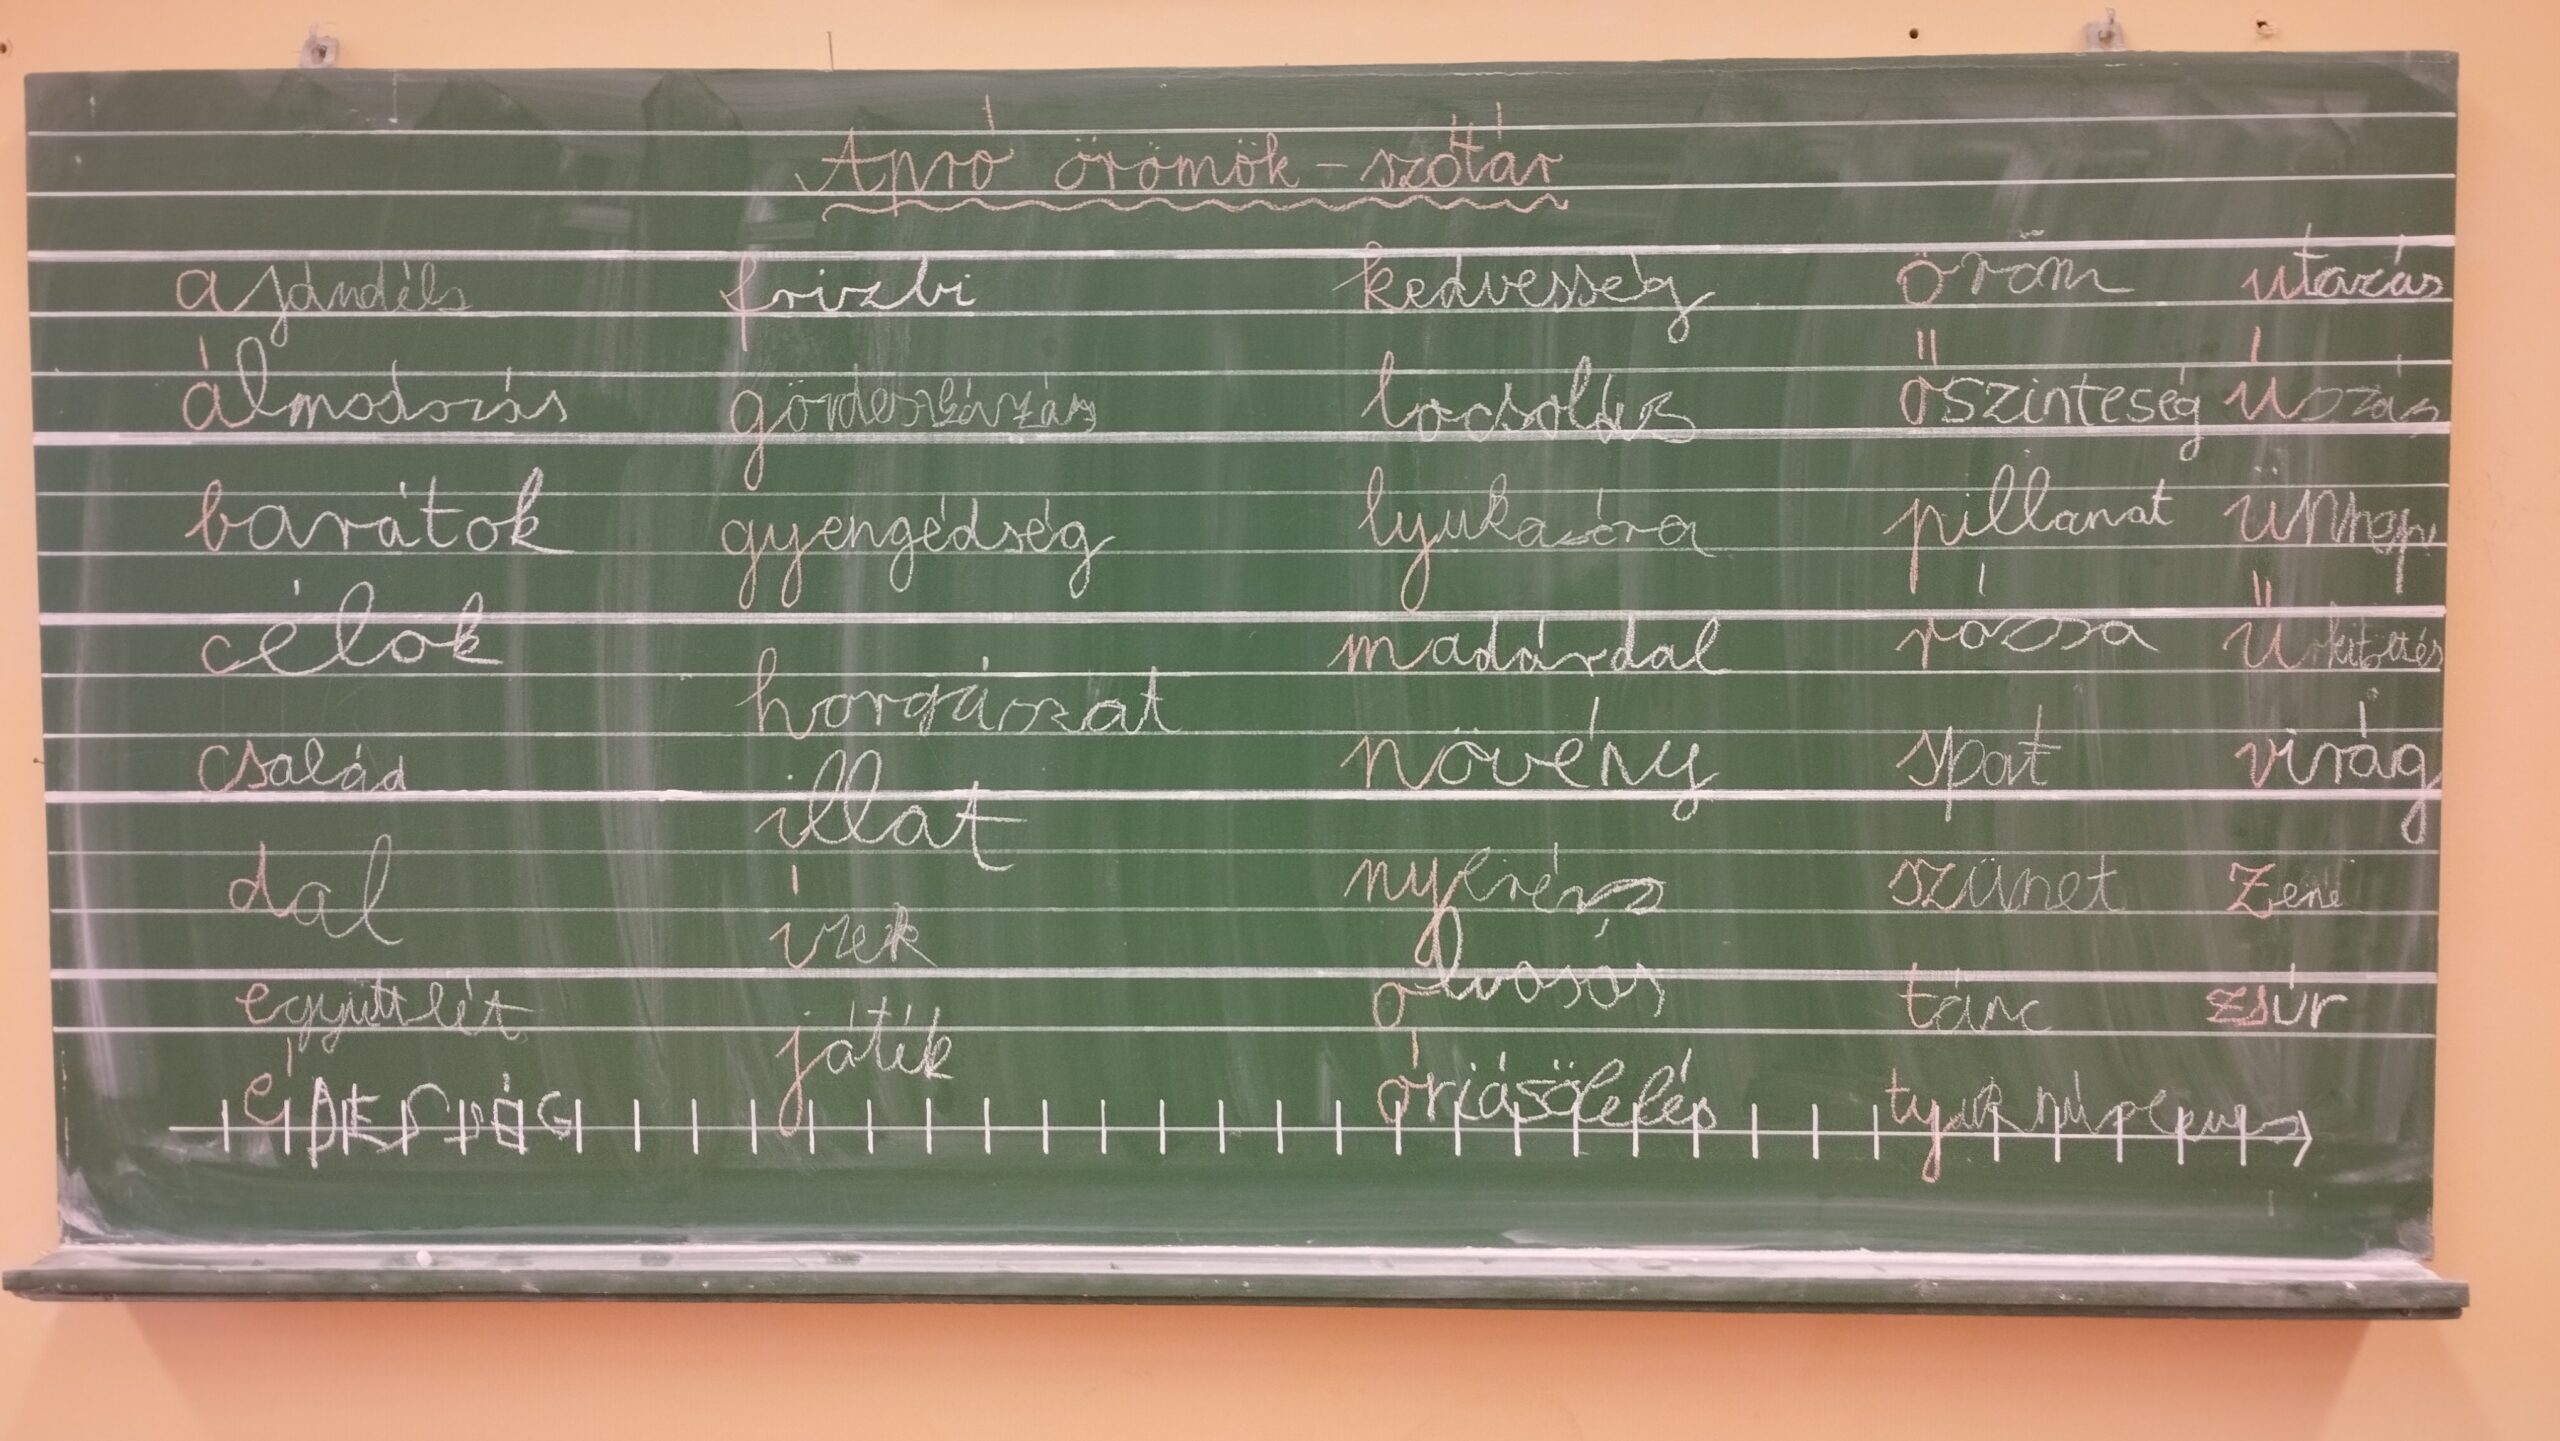 Apró örömök - szótár
ajándék
álmodozás
barátok
célok
család
dal
együttlét
éDESSÉG
frizbi
gördeszkázás
gyengédség
horgászat
illat
ízek
játék
kedvesség
locsolás
lyukasóra
madárdal
növény
nyerés
olvasás
óriásölelés
öröm
őszinteség
pillanat
rózsa
sport
szünet
tánc
utazás
úszás
ünnep
űrkitöltés
virág
zene
zsúr